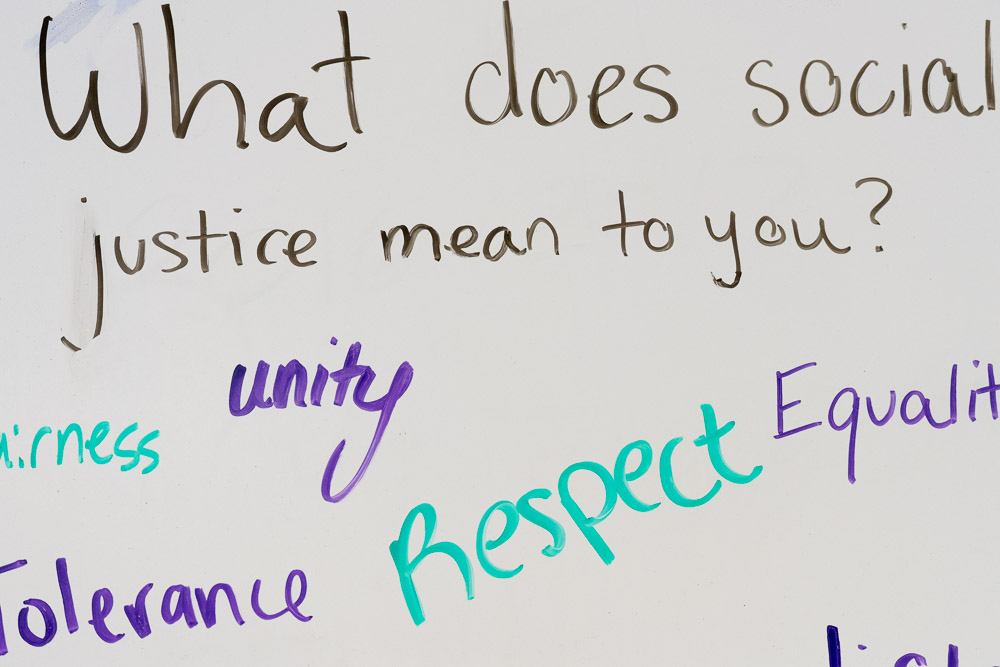 What does social
justice mean to you?
unity
Equalit
airness
Respect
Tolerance